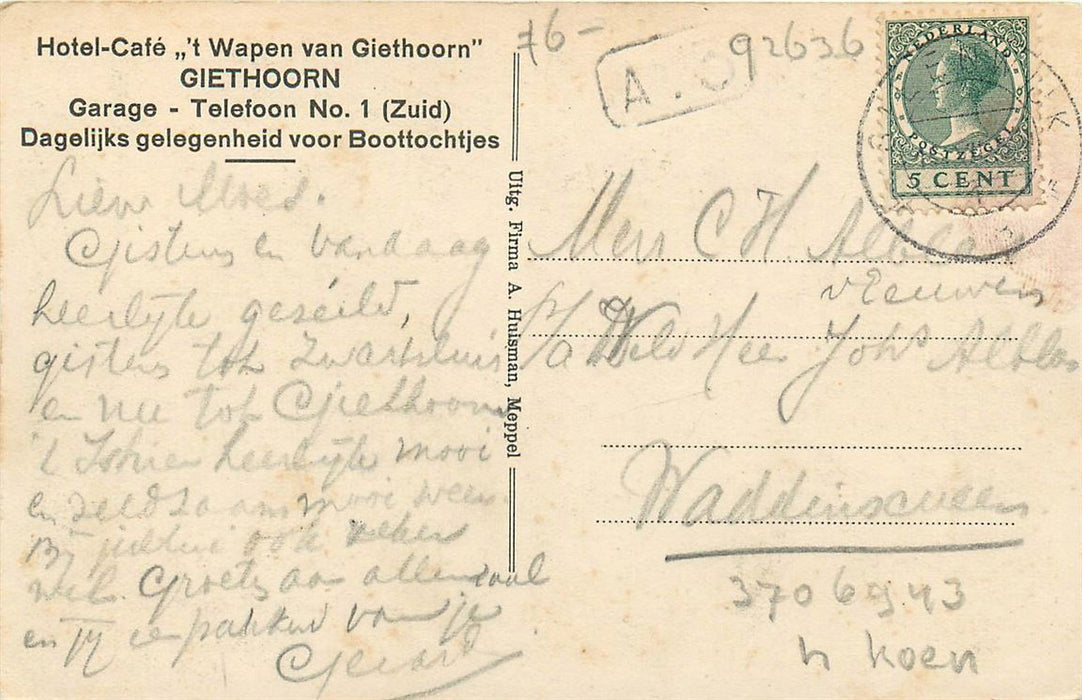 Hotel-Café „'t Wapen van Giethoorn”
GIETHOORN
Garage - Telefoon No. 1 (Zuid)
Dagelijks gelegenheid voor Boottochtjes
Lieve Moes.
Gistern en vandaag
heerlijk gezeild,
gistern tot Zwartsluis
en nu tot Giethoorn
't Is hier heerlijk mooi
en zeldzaam mooi weer
Bij jullie ook zeker
wel. Groeten aan allemaal
en jij een pakkerd van je
Gerard
Uitg. Firma A. Huisman, Meppel
76-
92636
A.O
NEDERLAND
POSTZEGEL
5 CENT
Mevr C H Alblas
v Leeuwen
p/a Weled Heer Joh's Alblas
Waddinxveen
3706943
h koen